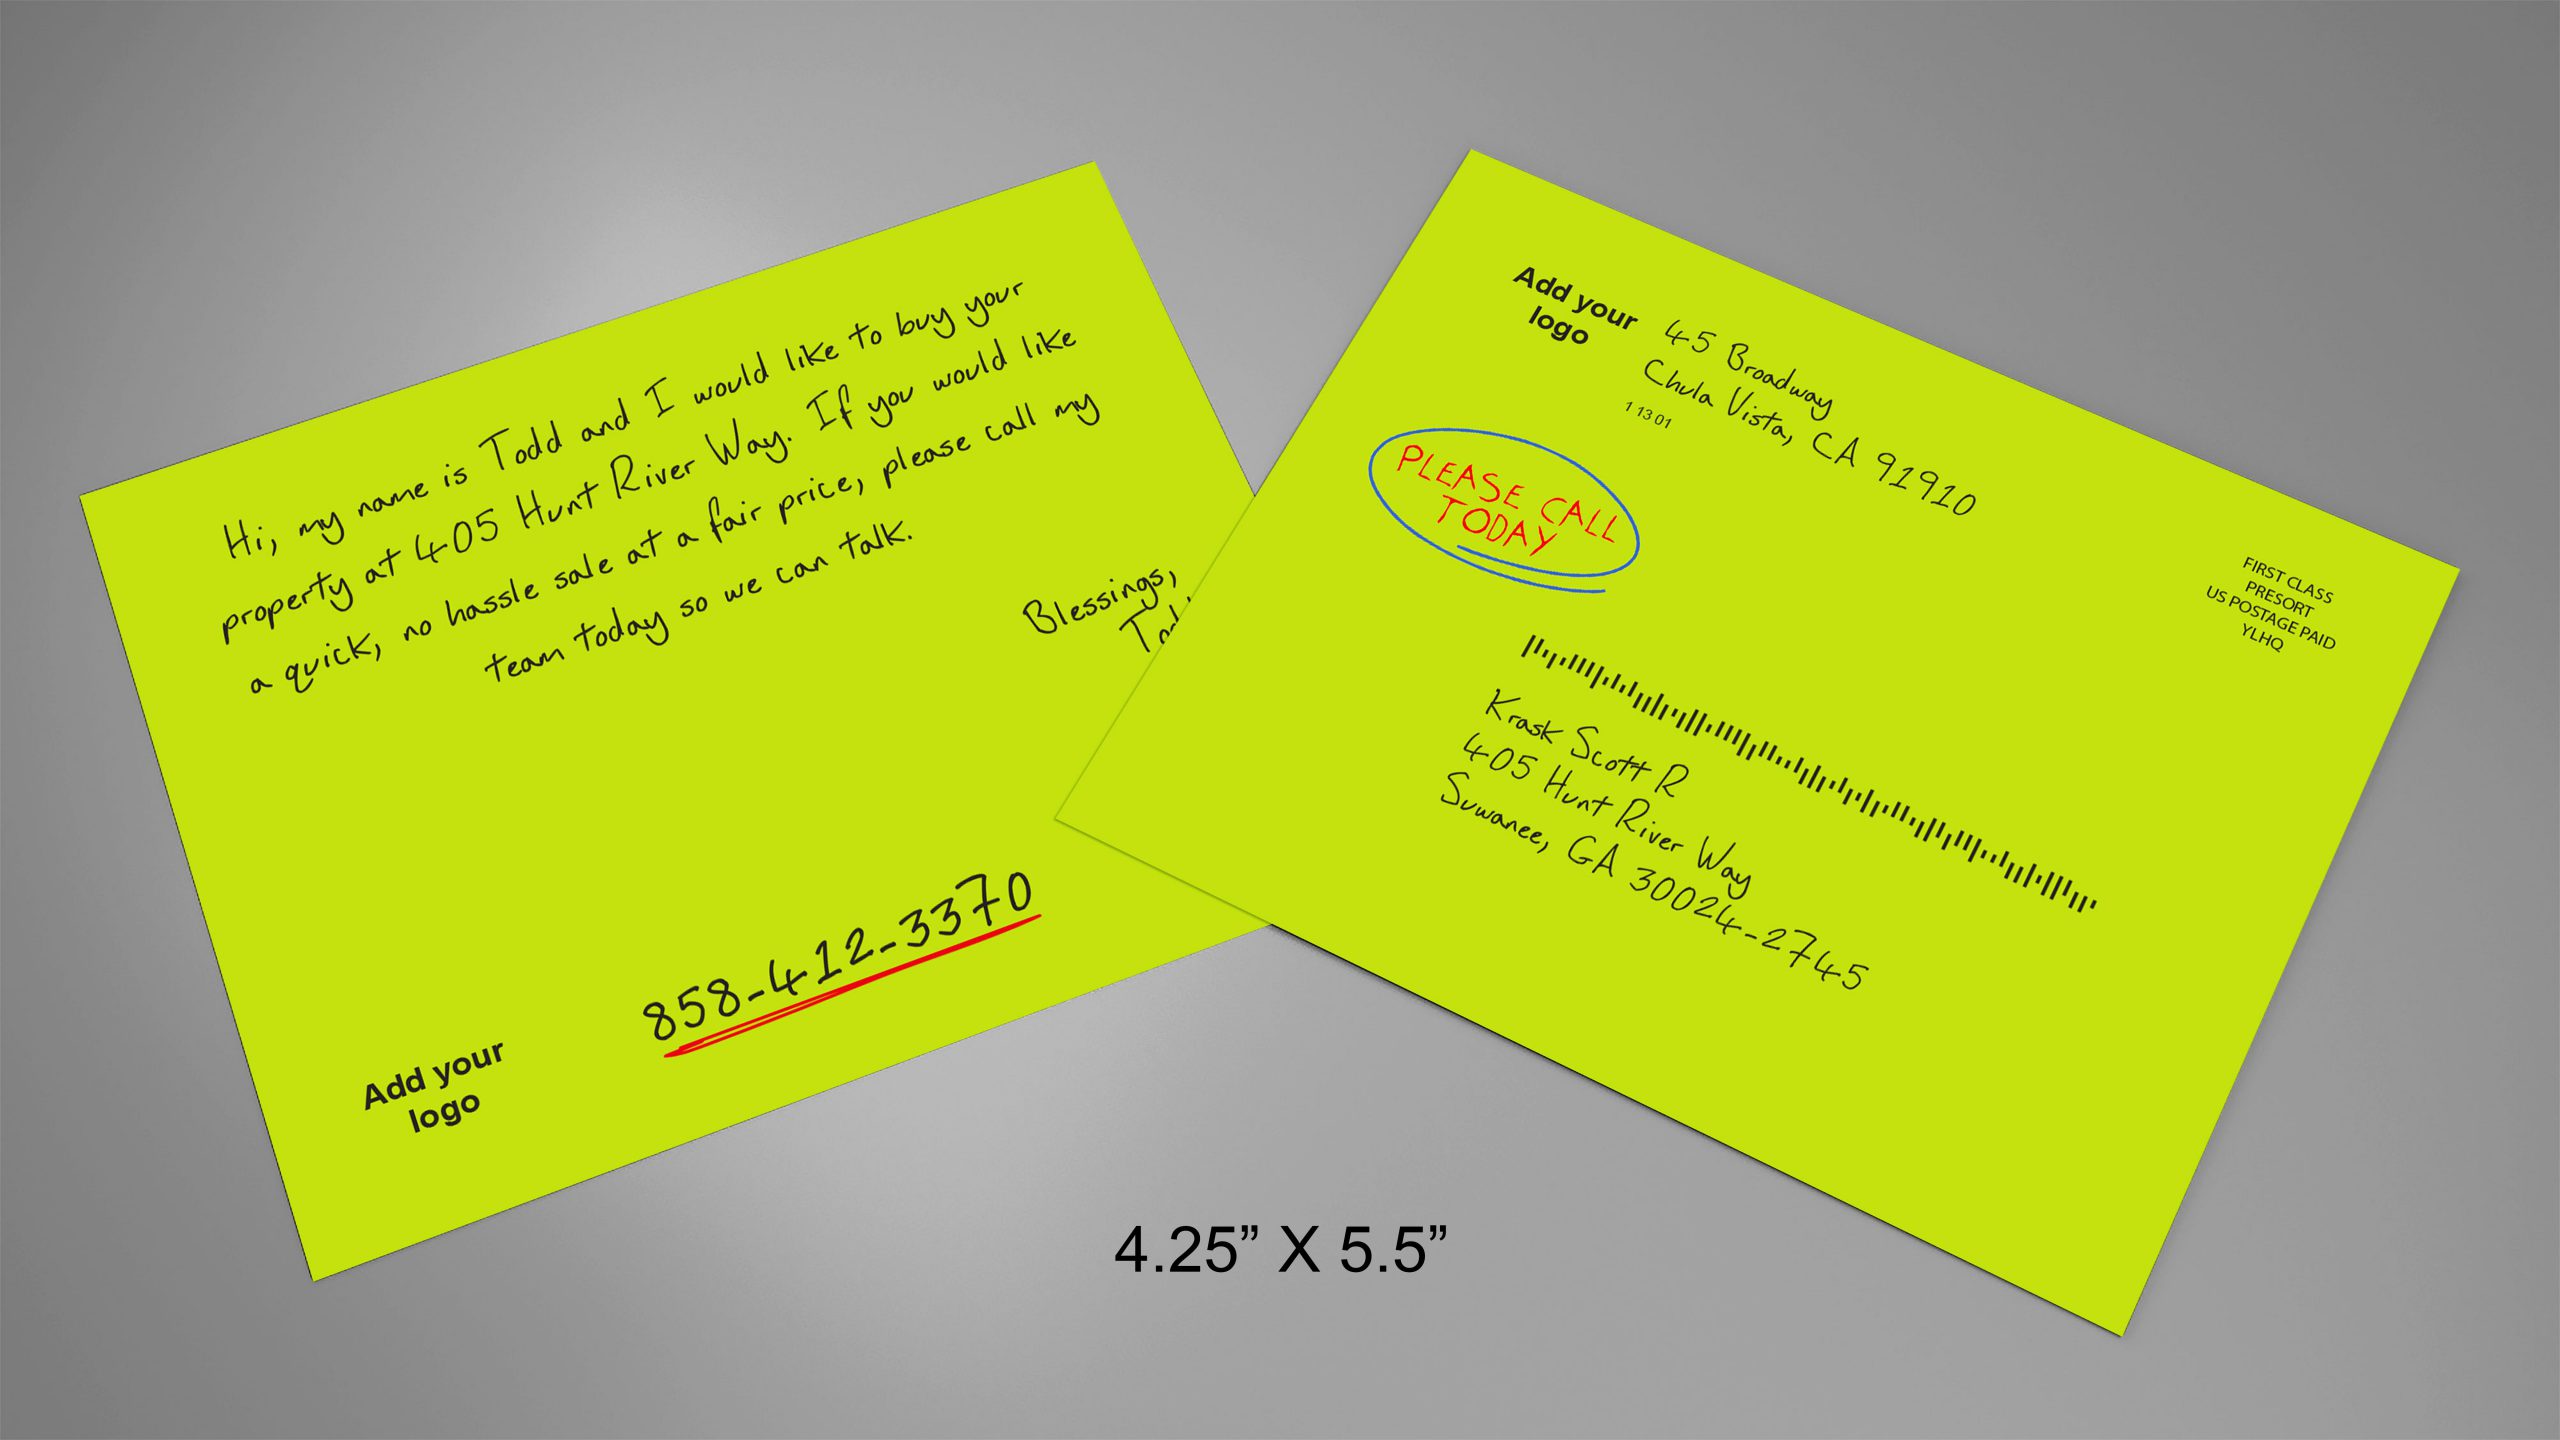 Hi, my name is Todd and I would like to buy your
property at 405 Hunt River Way. If you would like
a quick, no hassle sale at a fair price, please call my
team today so we can talk.
Blessings,
858-412-3370
Add your
logo
Add your
logo
45 Broadway
Chula Vista, CA 91910
1 13 01
PLEASE CALL
TODAY
FIRST CLASS
PRESORT
US POSTAGE PAID
YLHQ
Krask Scott R
405 Hunt River Way
Suwanee, GA 30024-2745
4.25” X 5.5”